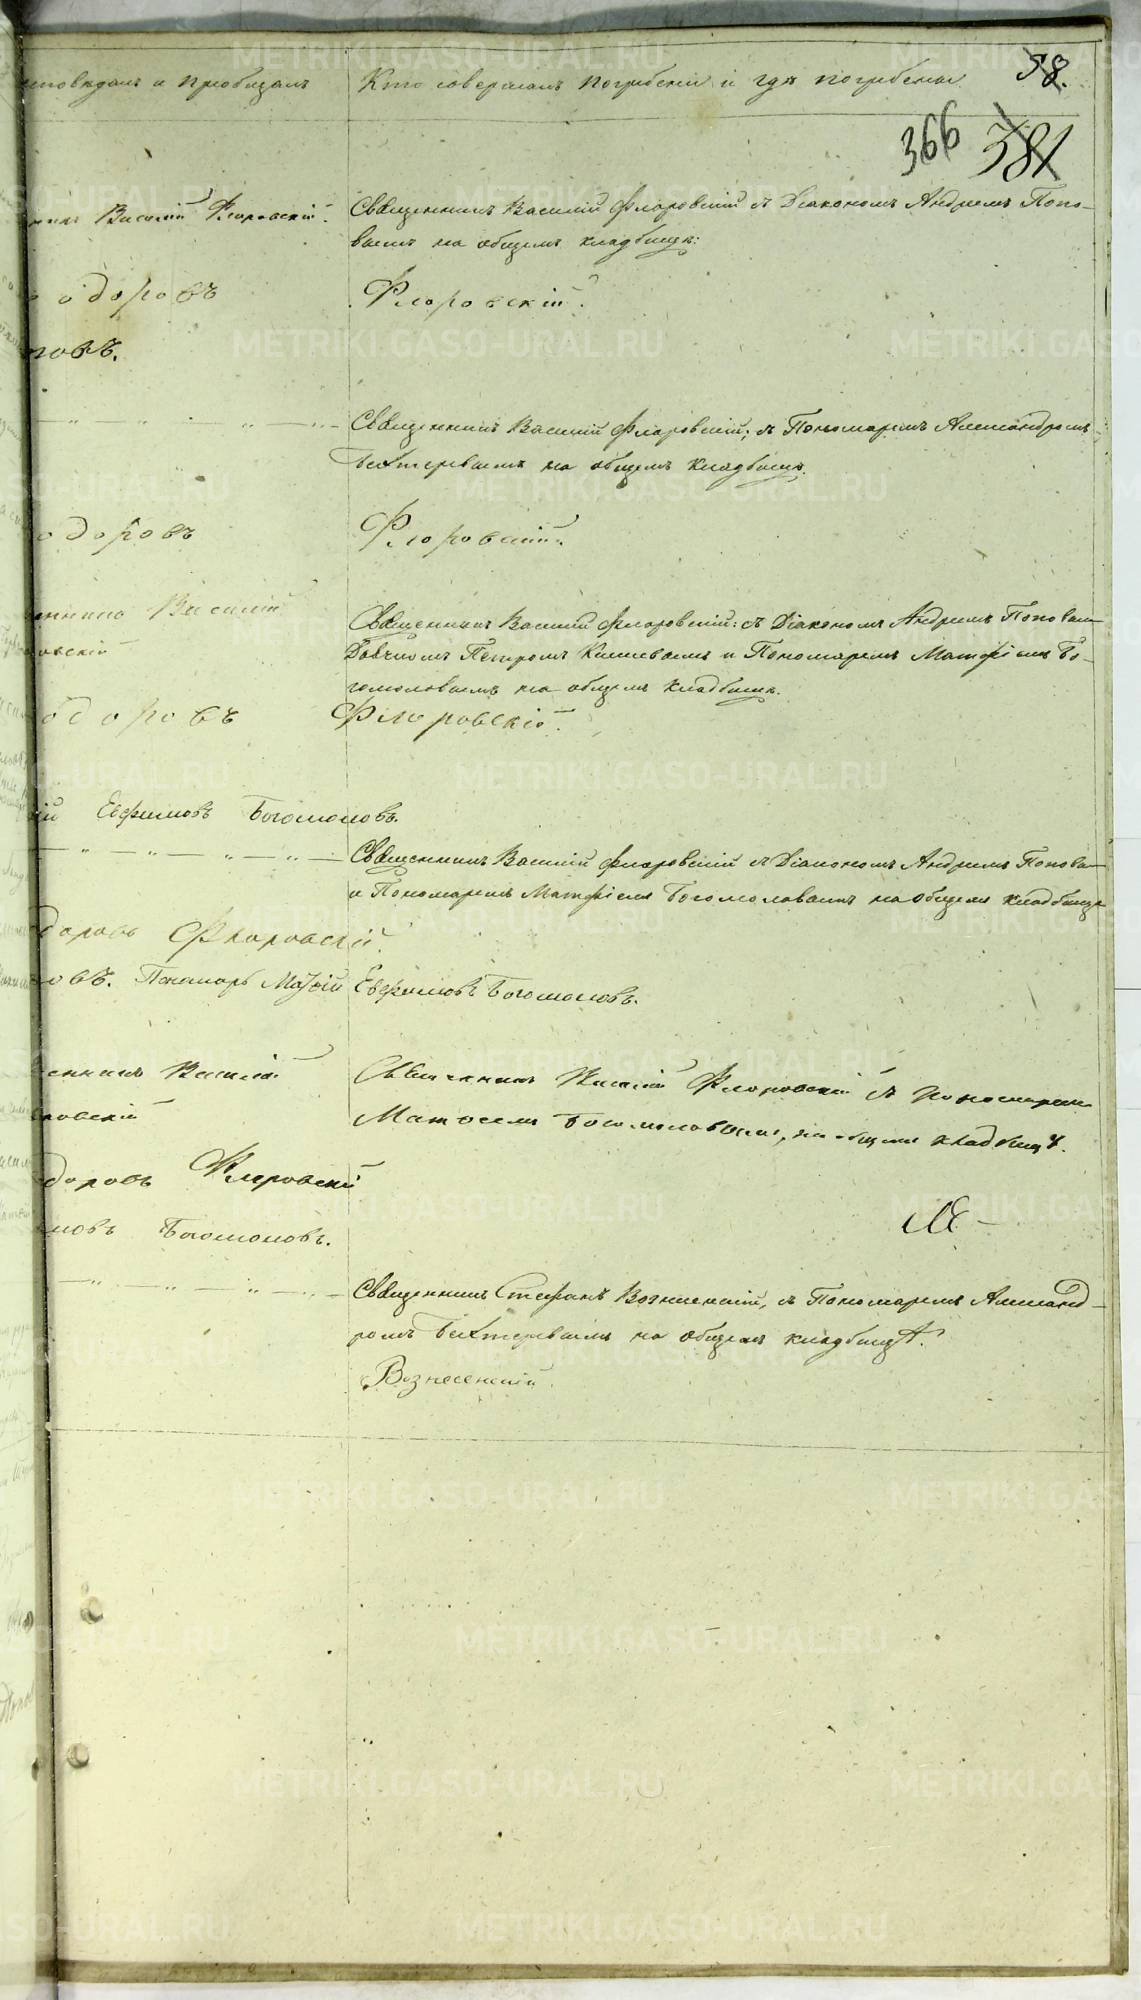 исповѣдалъ и пріобщалъ Кто совершалъ погребеніе и гдѣ погребены 58.
366 381
Василій Флоровскій. Священникъ Василій Флоровскій съ Діакономъ Андреемъ Попо-
вымъ на общемъ кладбищѣ:
одоровъ Флоровскій.
новъ.
Священникъ Василій Флоровскій, съ Пономаремъ Александромъ
Бехтеревымъ на общемъ кладбищѣ.
одоровъ Флоровскій.
енникъ Василій
Священникъ Василій Флоровскій: съ Діакономъ Андреемъ Поповым
ровскій Дьячкомъ Петромъ и Пономаремъ Матфіемъ Бо-
гомоловымъ на общемъ кладбищѣ.
одоровъ Флоровскій.
ій Евфимовъ Богомоловъ.
Священникъ Василій Флоровскій съ Діакономъ Андреемъ Поповы
и Пономаремъ Матфіемъ Богомоловымъ на общемъ кладбищѣ
доровъ Флоровскій
овъ. Пономарь Матѳій Евфимовъ Богомоловъ.
енникъ Василій Священникъ Василій Флоровскій съ Пономарем
ровскій Матѳеем Богомоловым, на общемъ кладбищѣ.
доровъ Флоровскій
мовъ Богомоловъ.
Священникъ Стефанъ Вознесенскій, съ Пономаремъ Александ-
ромъ Бехтеревымъ на общемъ кладбищѣ.
Вознесенскій.
METRIKI.GASO-URAL.RU